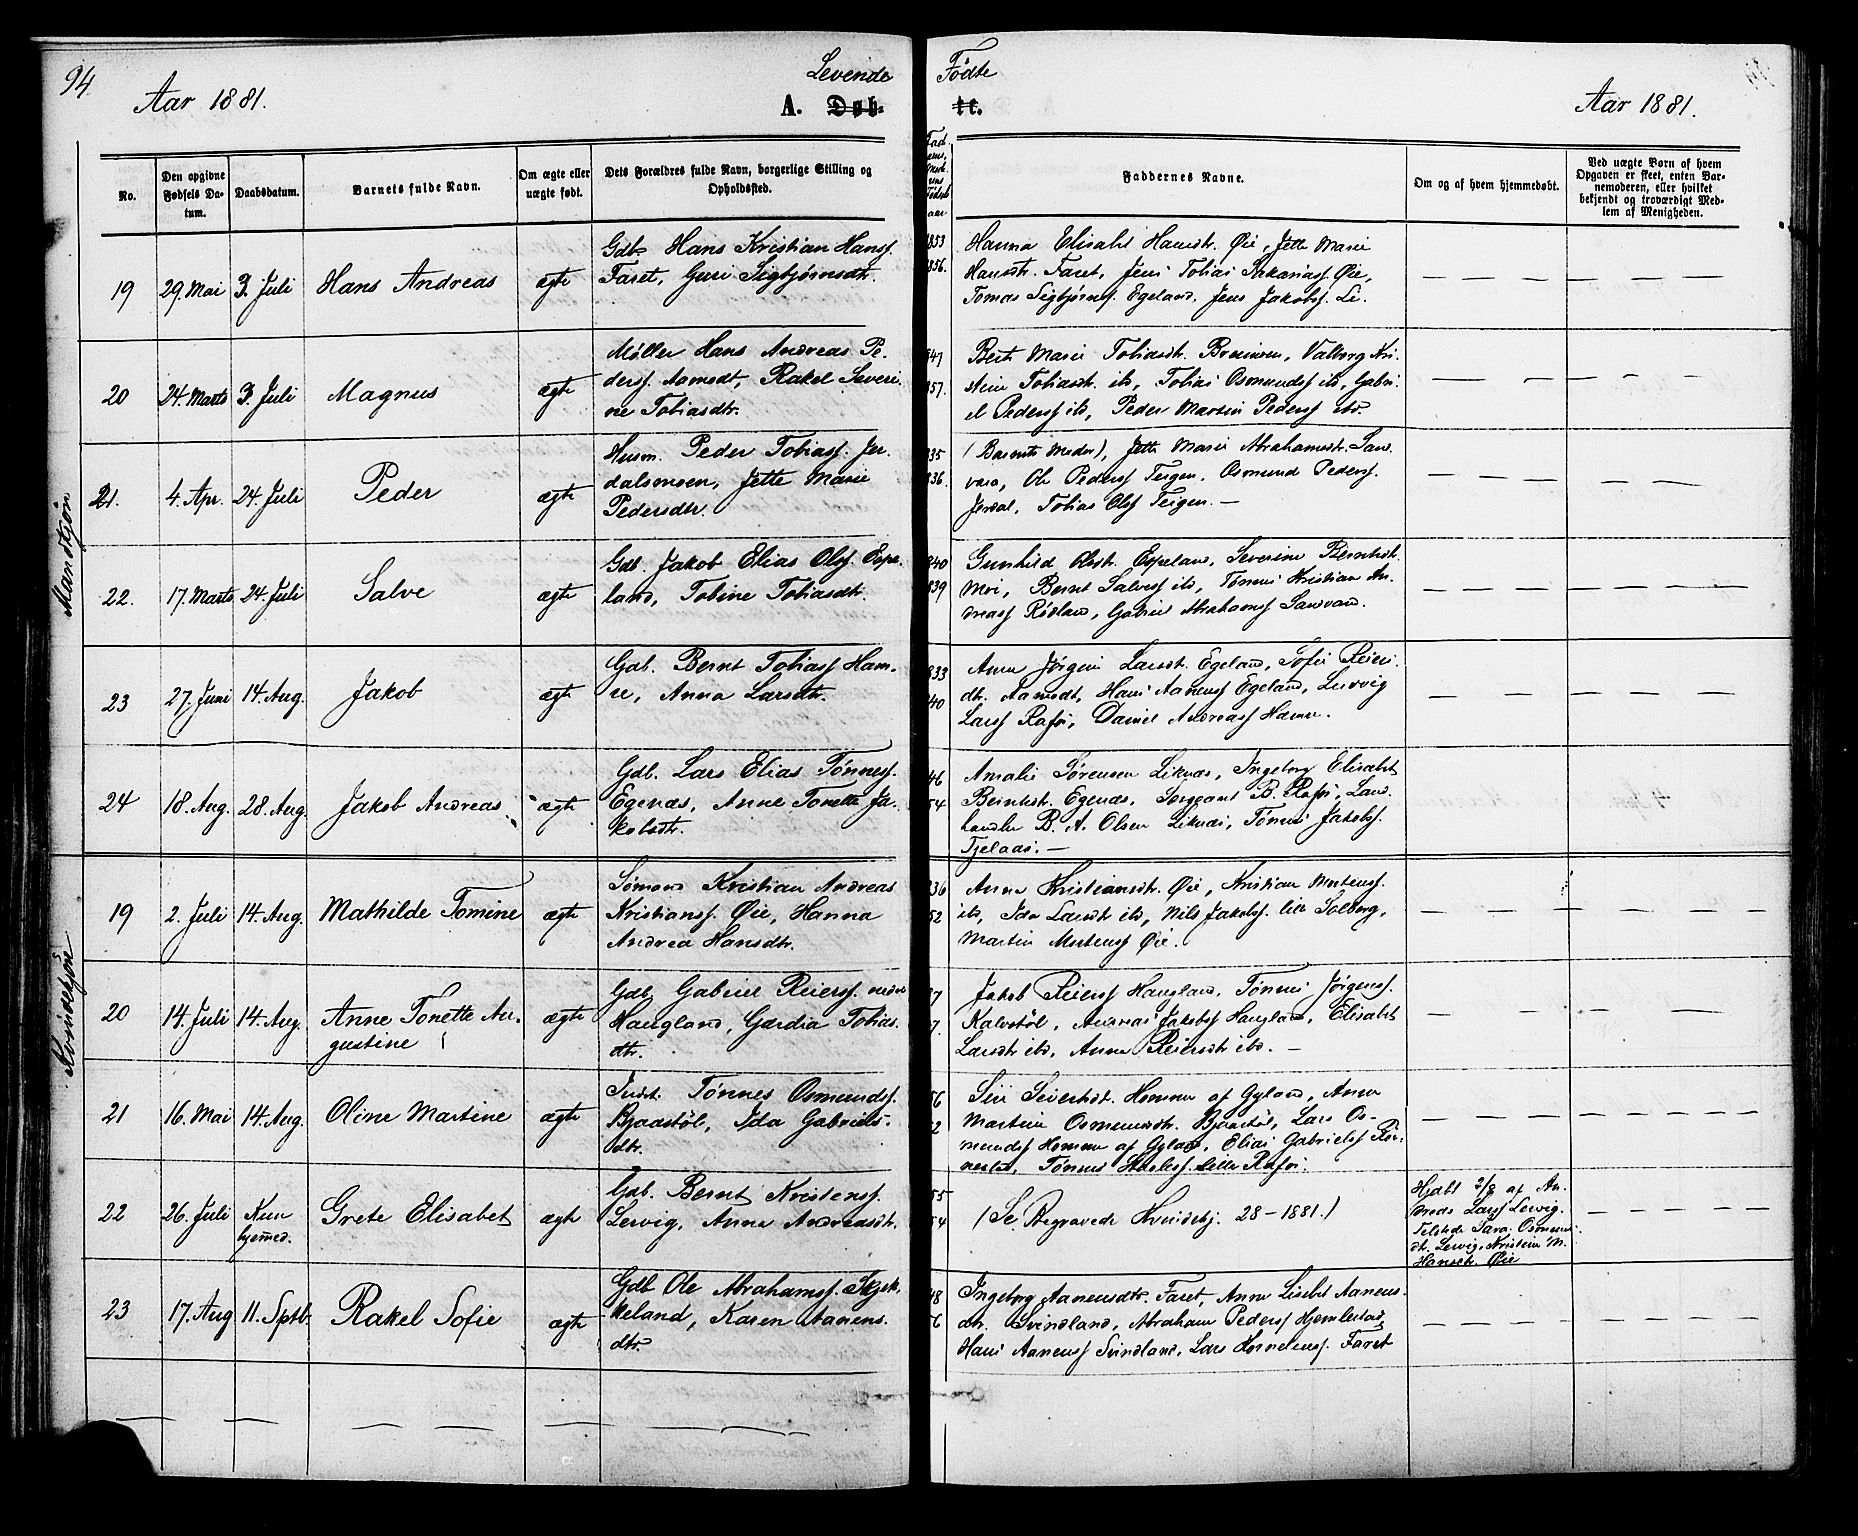 94
Levende Fødte
Aar 1881. A. Døb- te. Aar 1881.
No.
Den opgivne Fødsels Da-
tum.
Daabsdatum.
Barnets fulde Navn.
Om ægte eller
uægte født.
Dets Forældres fulde Navn, borgerlige Stilling og
Opholdssted.
Faddernes Navne.
Om og af hvem hjemmedøbt.
Ved uægte Børn af hvem
Opgaven er skeet, enten Bar-
nemoderen, eller hvilket
bekjendt og troværdigt Med-
lem af Menigheden.
Mandkjøn
19 29. Mai 3. Juli Hans Andreas ægte
Gdb. Hans Kristian Hanss.
Faret, Guri Sigbjørnsdtr.
1853
1856.
Hanna Elisabt Hansdtr. Øie, Jette Marie
Hansdtr. Faret, Jens Tobias Sakariass. Øie,
Tomas Sigbjørns. Egeland, Jens Jakobs. Li.
20 24. Marts 3. Juli Magnus ægte
Møller Hans Andreas Pe-
ders. Aamodt, Rakel Severi-
ne Tobiasdtr.
847
857.
Berte Marie Tobiasdtr. , Valborg Kri-
stine Tobiasdtr. ibd, Tobias Osmunds ibd, Gabri-
el Peders ibd, Peder Martin Peders ibd.
21. 4. Apr. 24. Juli Peder ægte
Husm. Peder Tobiass. Jer-
dalsmoen, Jette Marie
Pedersdtr.
835
836.
(Barnets Moder), Jette Marie Abrahamsdtr. San-
, Ole Peders Teigen, Osmund Peders.
Jerdal, Tobias Ols Teigen. —
22. 17. Marts 24. Juli Salve ægte
Gdb. Jakob Elias Ols. Espe-
land, Tobine Tobiasdtr.
840
839
Gunhild Olsdtr. Espeland, Severine Berntsdtr.
Moi, Bernt Salves ibd, Tønnes Kristian An-
dreass Rødland, Gabriel Abrahams Sandvand.
23 27. Juni 14. Aug. Jakob ægte
Gdb. Bernt Tobiass Ham-
re, Anna Larsdtr.
833
40
Anna Jørgine Larsdtr. Egeland, Sofie Reiers-
dtr. Aamodt, Hans Aanens Egeland, Ludvig
Larss Rafos, Daniel Andreass Hamre.
24 18. Aug. 28. Aug. Jakob Andreas ægte
Gdb. Lars Elias Tønness.
Egenæs, Anne Tonette Ja-
kobsdtr.
46
54
Amalie Sørensen Liknæs, Ingeborg Elisabet
Berntsdtr. Egenæs, Sergeant B. Rafos, Land-
handler B. A. Olsen Liknæs, Tønnes Jakobs.
Tjelaas. —
Kvindekjøn
19 2. Juli 14. Aug. Mathilde Tomine ægte
Sømand Kristian Andreas
Kristianss. Øie, Hanna
Andrea Hansdtr.
836
52
Anna Kristiansdtr. Øie, Kristian Mortens.
ibd, Ida Larsdtr ibd, Nils Jakobs. lille Solberg,
Martin Mortens Øie.
20 14. Juli 14. Aug. Anne Tonette Au-
gustine ægte
Gdb. Gabriel Reierss. nedre
Haugland, Gærdia Tobias-
dtr.
Jakob Reierss Haugland, Tønnes Jørgens.
Kalvstøl, Andreas Jakobs Haugland, Elisabet
Larsdtr ibd, Anna Reiersdtr ibd. —
21 16. Mai 14. Aug. Oline Martine ægte
Inds. Tønnes Osmunds.
Bjaastøl, Ida Gabriels-
dtr.
Siri Sivertsdt. Homme af Gyland, Anna
Martine Osmundsdtr. Bjaastøl, Lars Os-
munds Homme af Gyland, Elias Gabriels
, Tønnes lille Rafos.
22 26. Juli Kun
hjemmed. Grete Elisabet ægte
Gdb. Bernt Kristens.
Lervig, Anna Andreasdtr.
55
54
(Se Begravede Kvindekj. 28 – 1881.)
Hjdbt 2/8 af An-
dreas Larss Lervig.
Tilstede Sara Osmun-
dt. Lervig, Kristine M.
Hansdtr. Øie
23 17. Aug 11. Sptb. Rakel Sofie ægte
Gdb Ole Abrahamss. Skjek-
keland, Karen Aanens-
dtr.
48
Ingeborg Aanensdtr. Faret, Anna Lisbet Aanens-
dtr. Svindland, Abraham Peders Hjemlestad,
Hans Aanens Svindland, Lars Kornelius. Faret